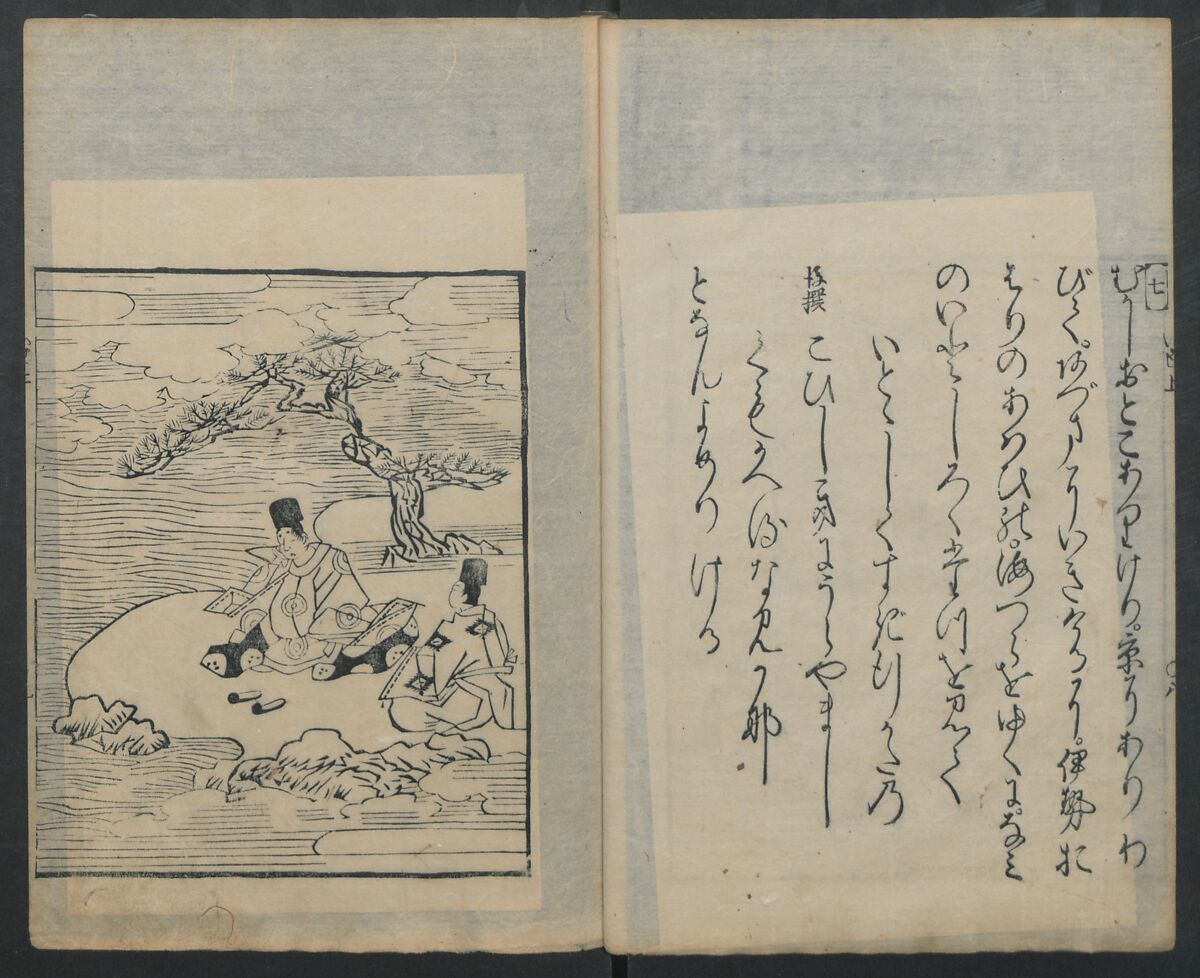 七
むかしおとこありけり。京にありわ
びて。あづまにいきけるに。伊勢お
はりのあはひの。海つらをゆくに。なみ
のいとしろくたつを見て
いとゝしくすぎ行かたの
後撰
こひしきにうらやまし
くもかへるなみかな
となんよめりける